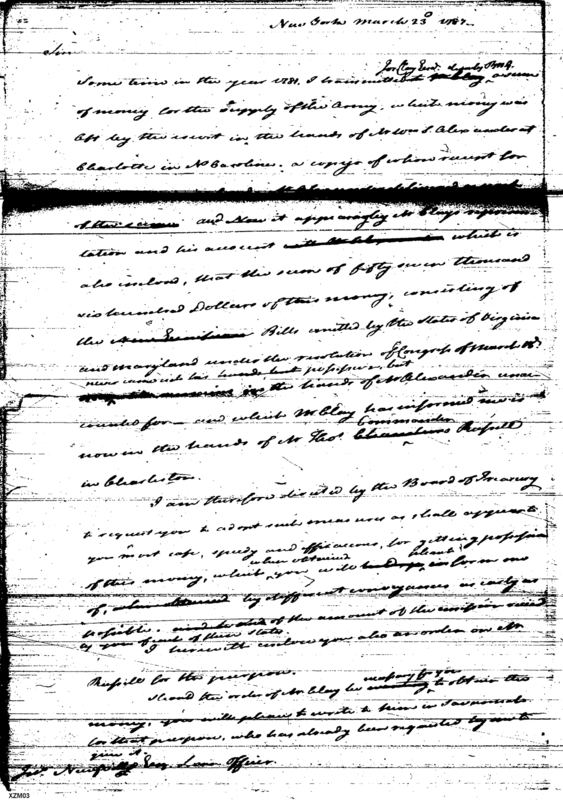 New York March 23d 1787.
Sir
Jos Clay Esqr. deputy P.M.G.
Some time in the year 1781. I transmitted to a sum
of money for the supply of the Army, which money was
left by the escort in the hands of Mr Wm S. Alexander at
Charlotte in No Carolina. a copy of whose receipt for
and Now it appears by Mr Clays represen
tation and his account which is
also inclosed, that the sum of fifty seven thousand
six hundred Dollars of this money, consisting of
the New Emission Bills emitted by the States of Virginia
and Maryland under the resolution of Congress of March 18d
never came into his hands but
the hands of Mr Alexander unac
counted for — and which Mr Clay has informed me is
Commander
now in the hands of Mr Thos. Russell
in Charleston.
I am therefore directed by the Board of Treasury
to request you to adopt such measures as shall appear to
you most safe, speedy and efficacious, for getting possession
when obtained please
of this money, which you will inform me
of, by different conveyances as early as
possible, of the amount of the emission
as of each of these States
I herewith inclose you also an order on Mr
Russell for the purpose.
necessary for you
Should the order of Mr Clay be to obtain the
money, you will please to write to him in Savannah
for that purpose, who has already been requested by me to
give it.
Esq Law Officer.
XZM03